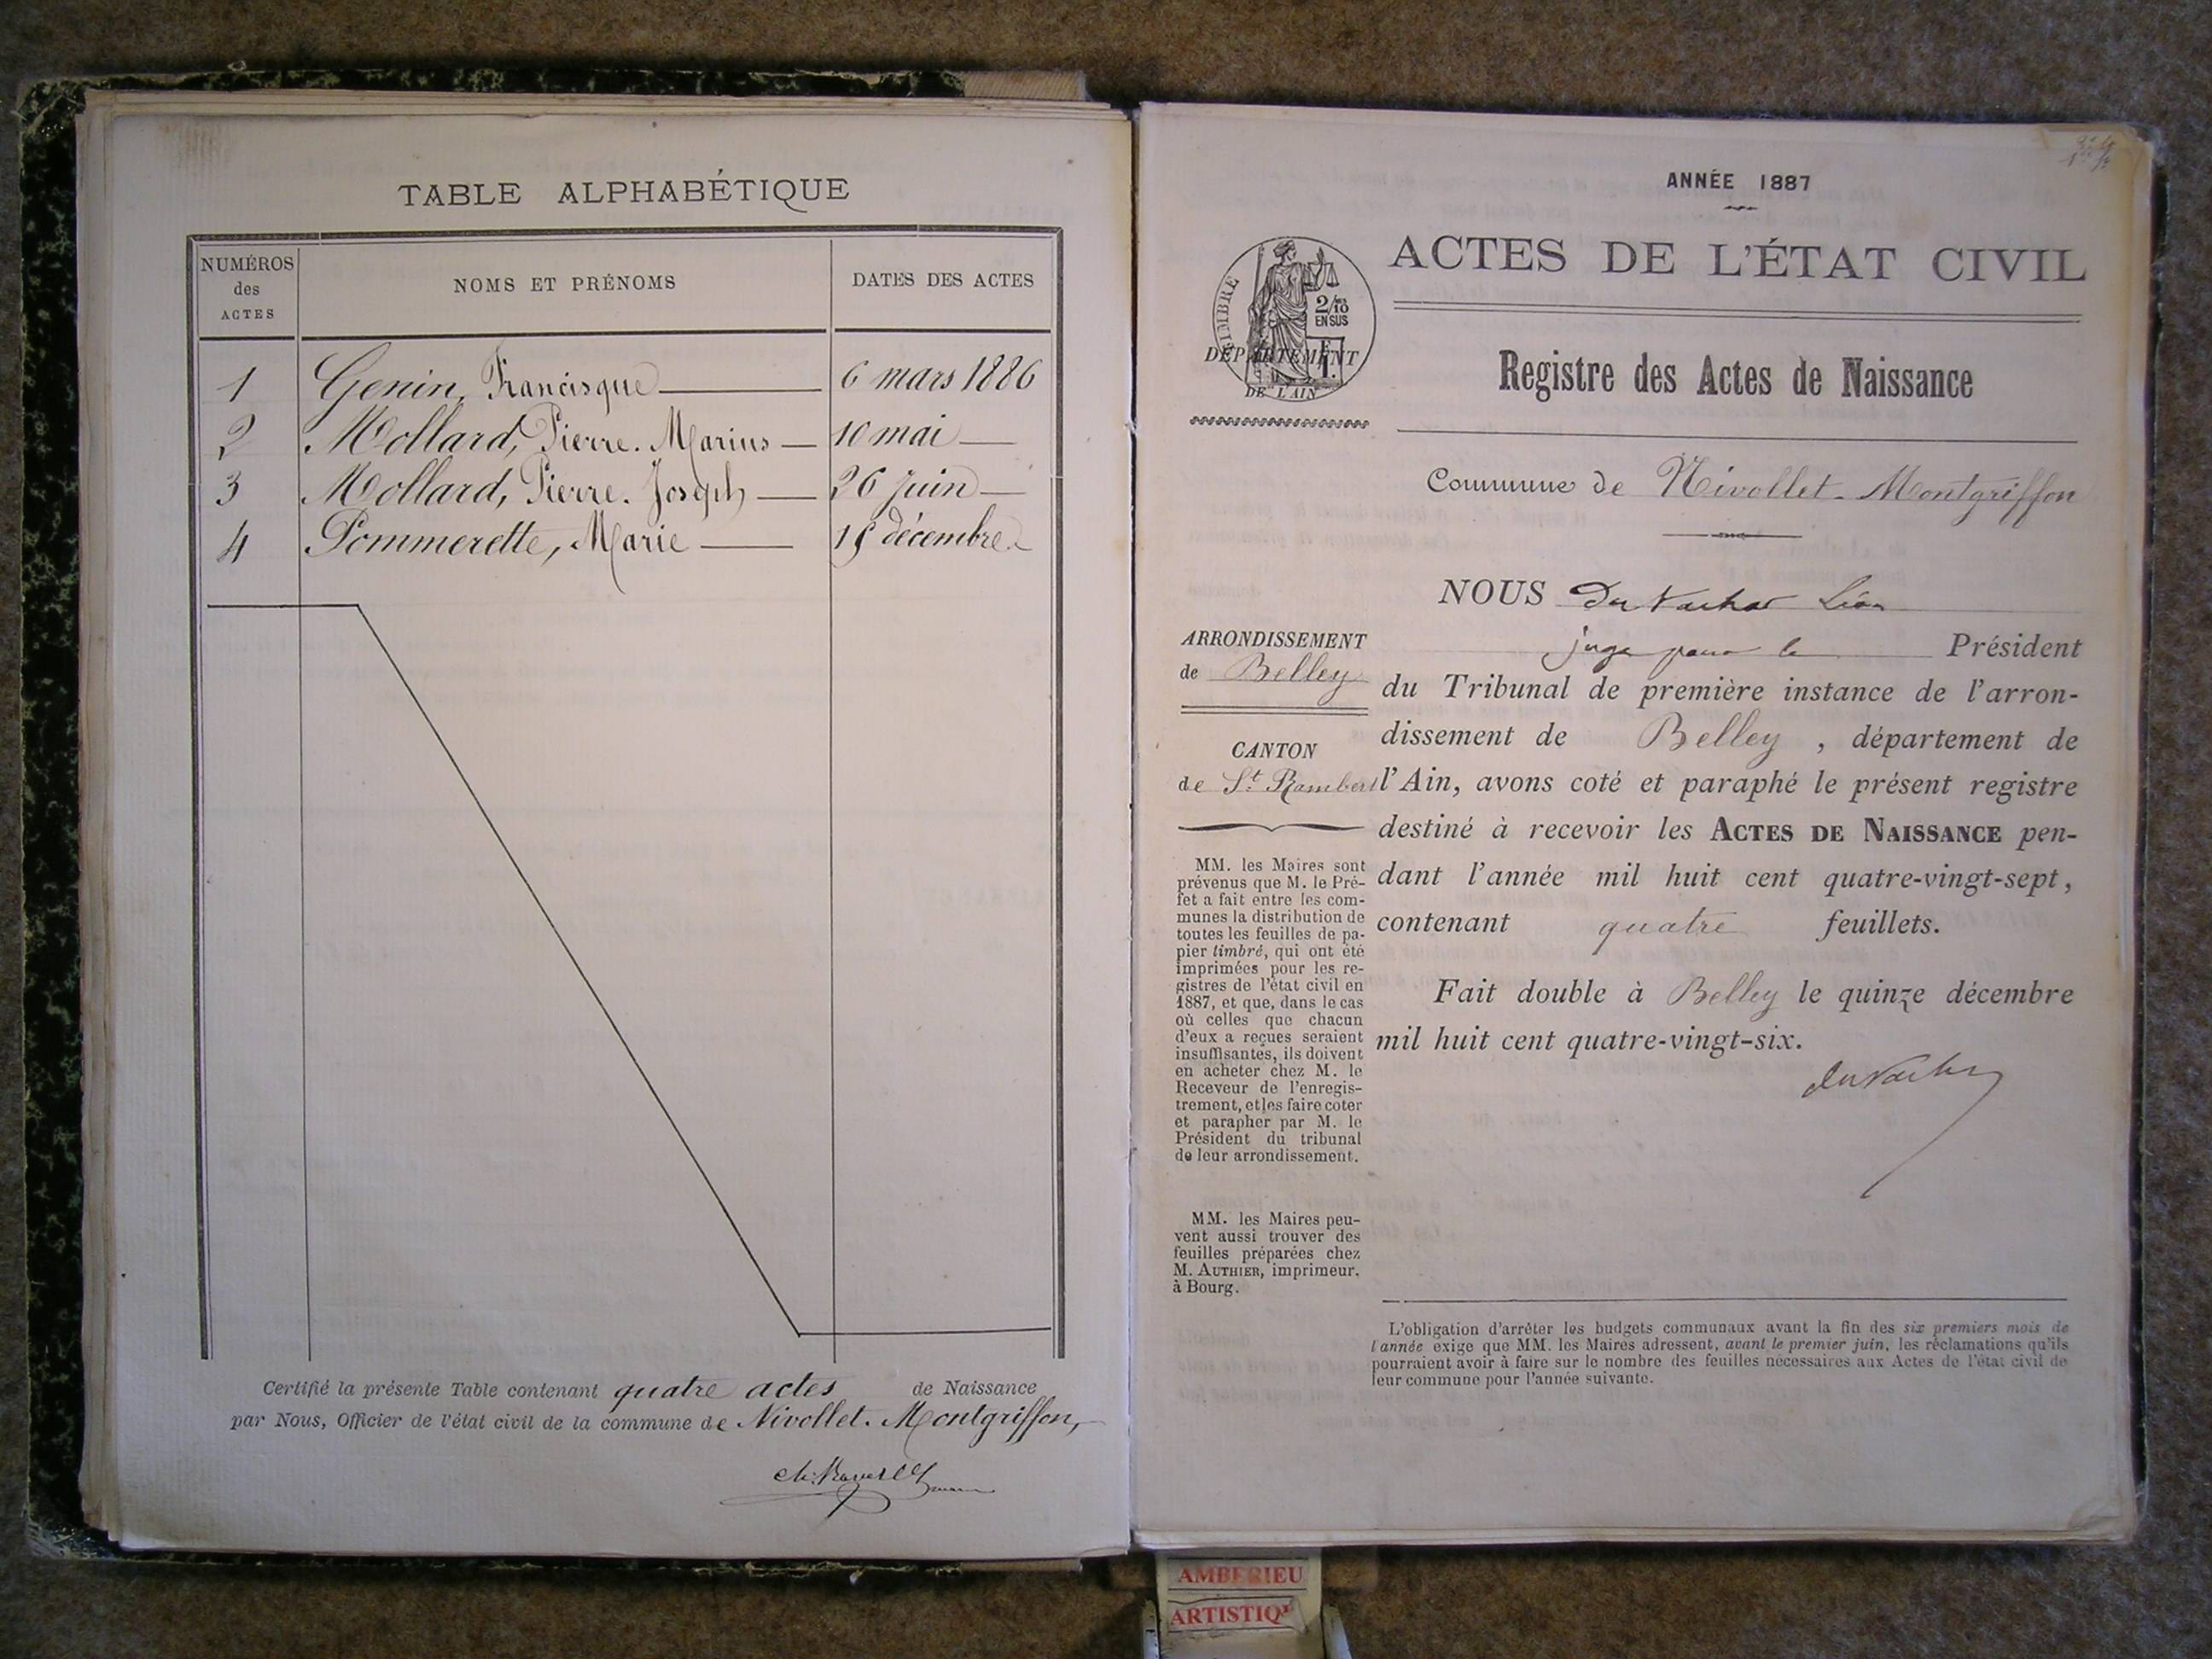 TABLE ALPHABÉTIQUE
NUMÉROS
des
ACTES
NOMS ET PRÉNOMS
DATES DES ACTES
1 Genin, Francisque 6 mars 1886
2 Mollard, Pierre. Marius 10 mai
3 Mollard, Pierre. Joseph 26 juin
4 Pommerette, Marie décembre
Certifié la présente Table contenant quatre actes de Naissance
par Nous, Officier de l'état civil de la commune de Nivollet. Montgriffon,
ANNÉE 1887
TIMBRE
2/10
EN SUS
DÉPARTEMENT
DE L'AIN
ACTES DE L'ÉTAT CIVIL
Registre des Actes de Naissance
Commune de Nivollet-Montgriffon
ARRONDISSEMENT
de Belley
CANTON
de St. Rambert
MM. les Maires sont
prévenus que M. le Pré-
fet a fait entre les com-
munes la distribution de
toutes les feuilles de pa-
pier timbré, qui ont été
imprimées pour les re-
gistres de l'état civil en
1887, et que, dans le cas
où celles que chacun
d'eux a reçues seraient
insuffisantes, ils doivent
en acheter chez M. le
Receveur de l'enregis-
trement, et les faire coter
et parapher par M. le
Président du tribunal
de leur arrondissement.
MM. les Maires peu-
vent aussi trouver des
feuilles préparées chez
M. AUTHIER, imprimeur.
à Bourg.
NOUS Du Vachat Léon
juge pour le Président
du Tribunal de première instance de l'arron-
dissement de Belley, département de
l'Ain, avons coté et paraphé le présent registre
destiné à recevoir les ACTES DE NAISSANCE pen-
dant l'année mil huit cent quatre-vingt-sept,
contenant quatre feuillets.
Fait double à Belley le quinze décembre
mil huit cent quatre-vingt-six.
Du Vachat
L'obligation d'arrêter les budgets communaux avant la fin des six premiers mois de
l'année exige que MM. les Maires adressent, avant le premier juin, les réclamations qu'ils
pourraient avoir à faire sur le nombre des feuilles nécessaires aux Actes de l'état civil de
leur commune pour l'année suivante.
AMBERIEU
ARTISTIQ